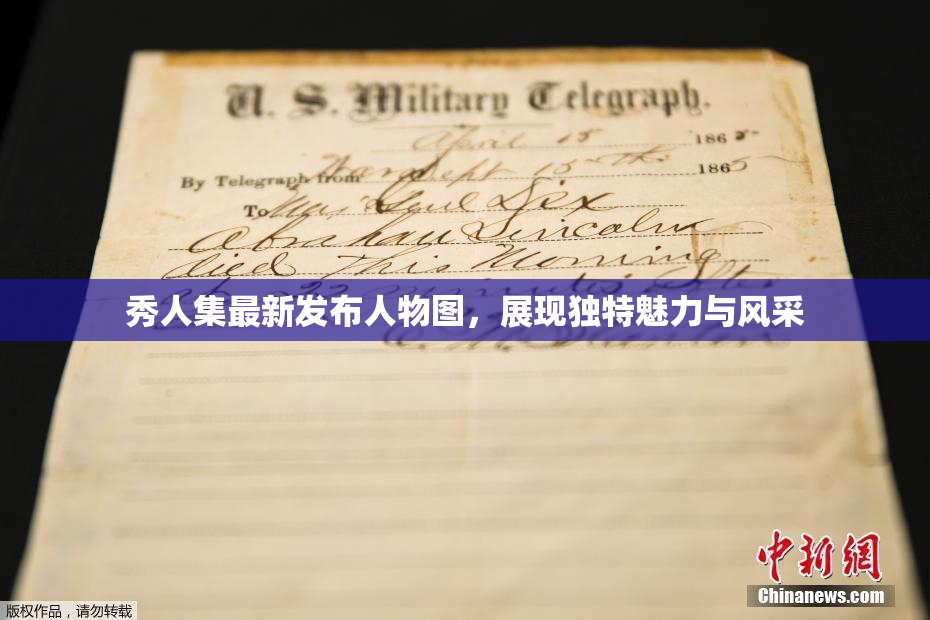 U. S. Military Telegraph.
April 15 1865
By Telegraph from War Dept 15th 1865
To Maj Genl Dix
Abraham Lincoln
died This Morning
22 minutes after
秀人集最新发布人物图，展现独特魅力与风采
E. M. Stanton
中新網
Chinanews.com
版权作品，请勿转载